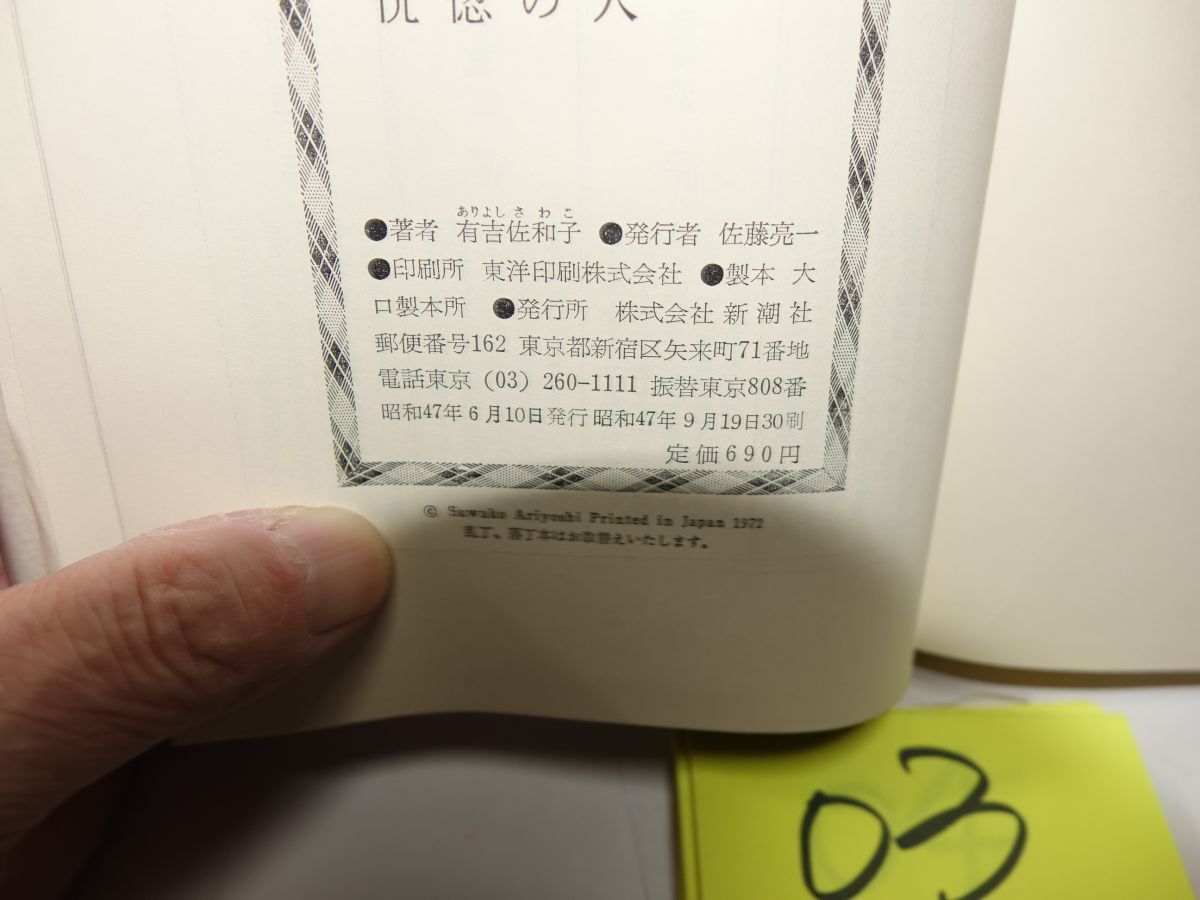 恍惚の人
ありよし さ わ こ
●著者 有吉佐和子 ●発行者 佐藤亮一
●印刷所 東洋印刷株式会社 ●製本 大
口製本所 ●発行所 株式会社新潮社
郵便番号162 東京都新宿区矢来町71番地
電話東京(03)260-1111 振替東京808番
昭和47年6月10日発行 昭和47年9月19日30刷
定価690円
© Sawako Ariyoshi Printed in Japan 1972
乱丁、落丁本はお取替えいたします。
03